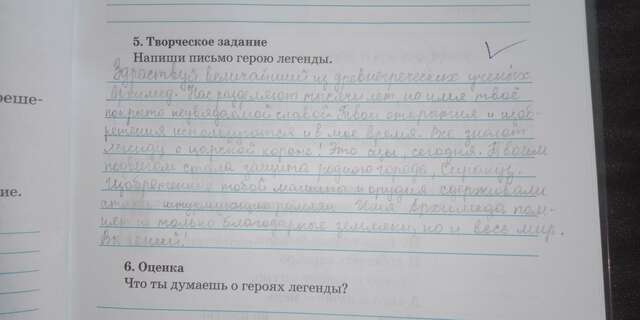 5. Творческое задание
Напиши письмо герою легенды.
Здраствуй величайший из древнегреческих ученых
Архимед. Нас разделяют тысячи лет, но имя твоё
покрыто неувядаемой славой. Твои открытия и изоб-
ретения используются и в мое время. Все знают
легенду о царской короне! Это и сегодня. Твоим
подвигом стала защита родного города, Сиракуз.
Изобретенные тобой машины и орудия сдерживали
римлян. Имя Архимеда пом-
нят не только благодарные земляки, но и весь мир.
Ты гений!
6. Оценка
Что ты думаешь о героях легенды?
реше-
ие.